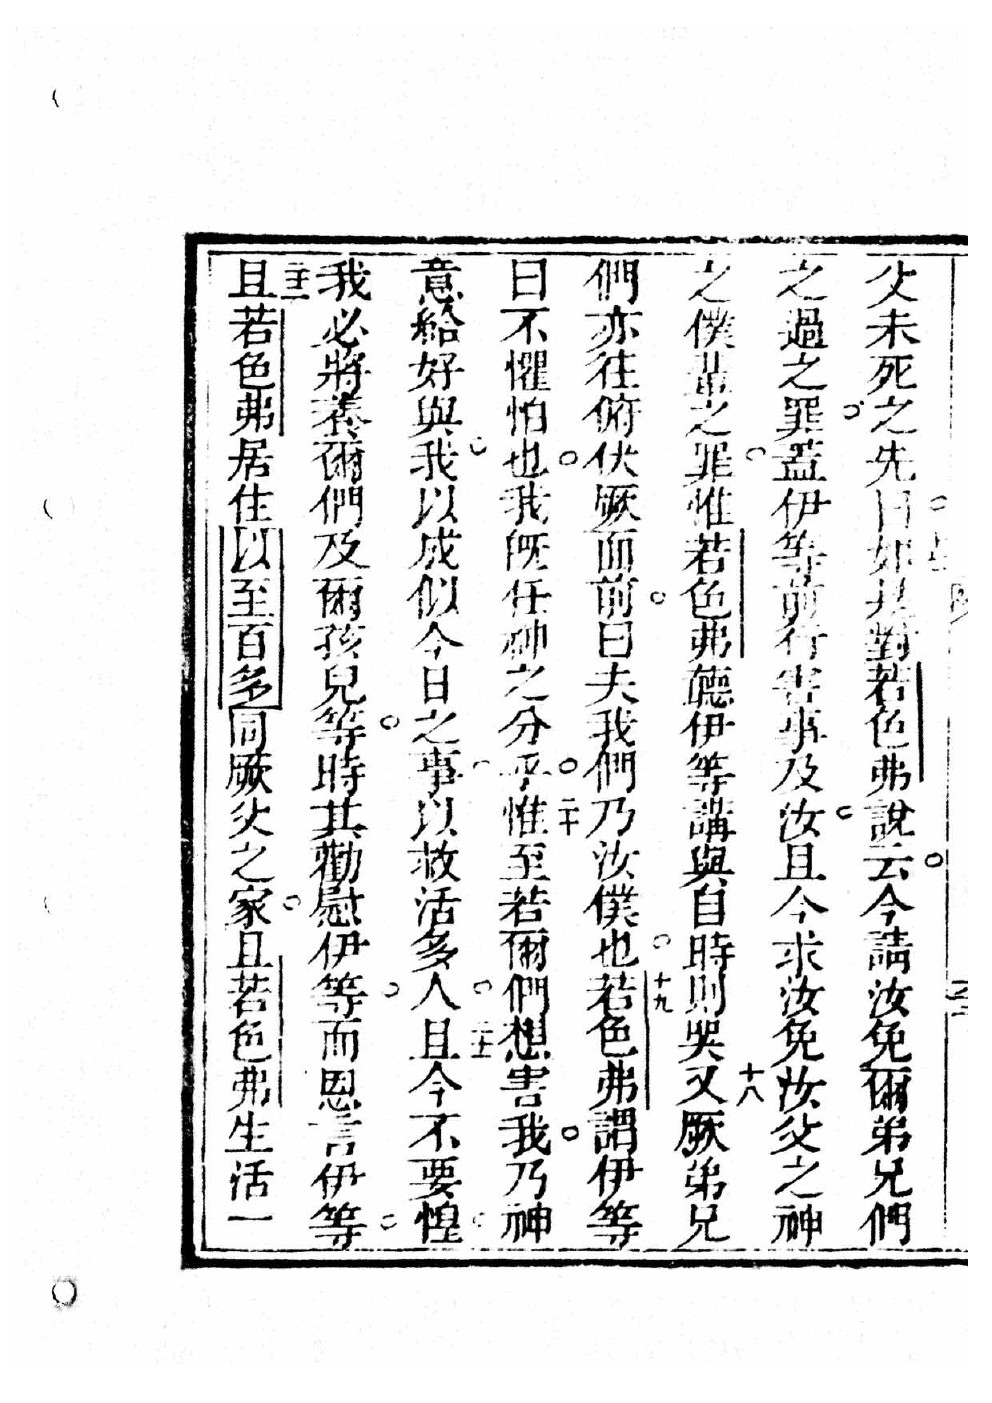 父未死之先曰如是對若色弗說云今請汝免爾弟兄們
之過之罪蓋伊等前行害事及汝且今求汝免汝父之神
之僕輩之罪惟若色弗聽伊等講與自時則哭十八又厥弟兄
們亦往俯伏厥面前曰夫我們乃汝僕也十九若色弗謂伊等
曰不懼怕也我既任神之分乎二十惟至若爾們想害我乃神
意給好與我以成似今日之事以救活多人二十一且今不要惶
我必將養爾們及爾孩兒等時其勸慰伊等而恩言伊等
二十二且若色弗居住以至百多同厥父之家且若色弗生活一